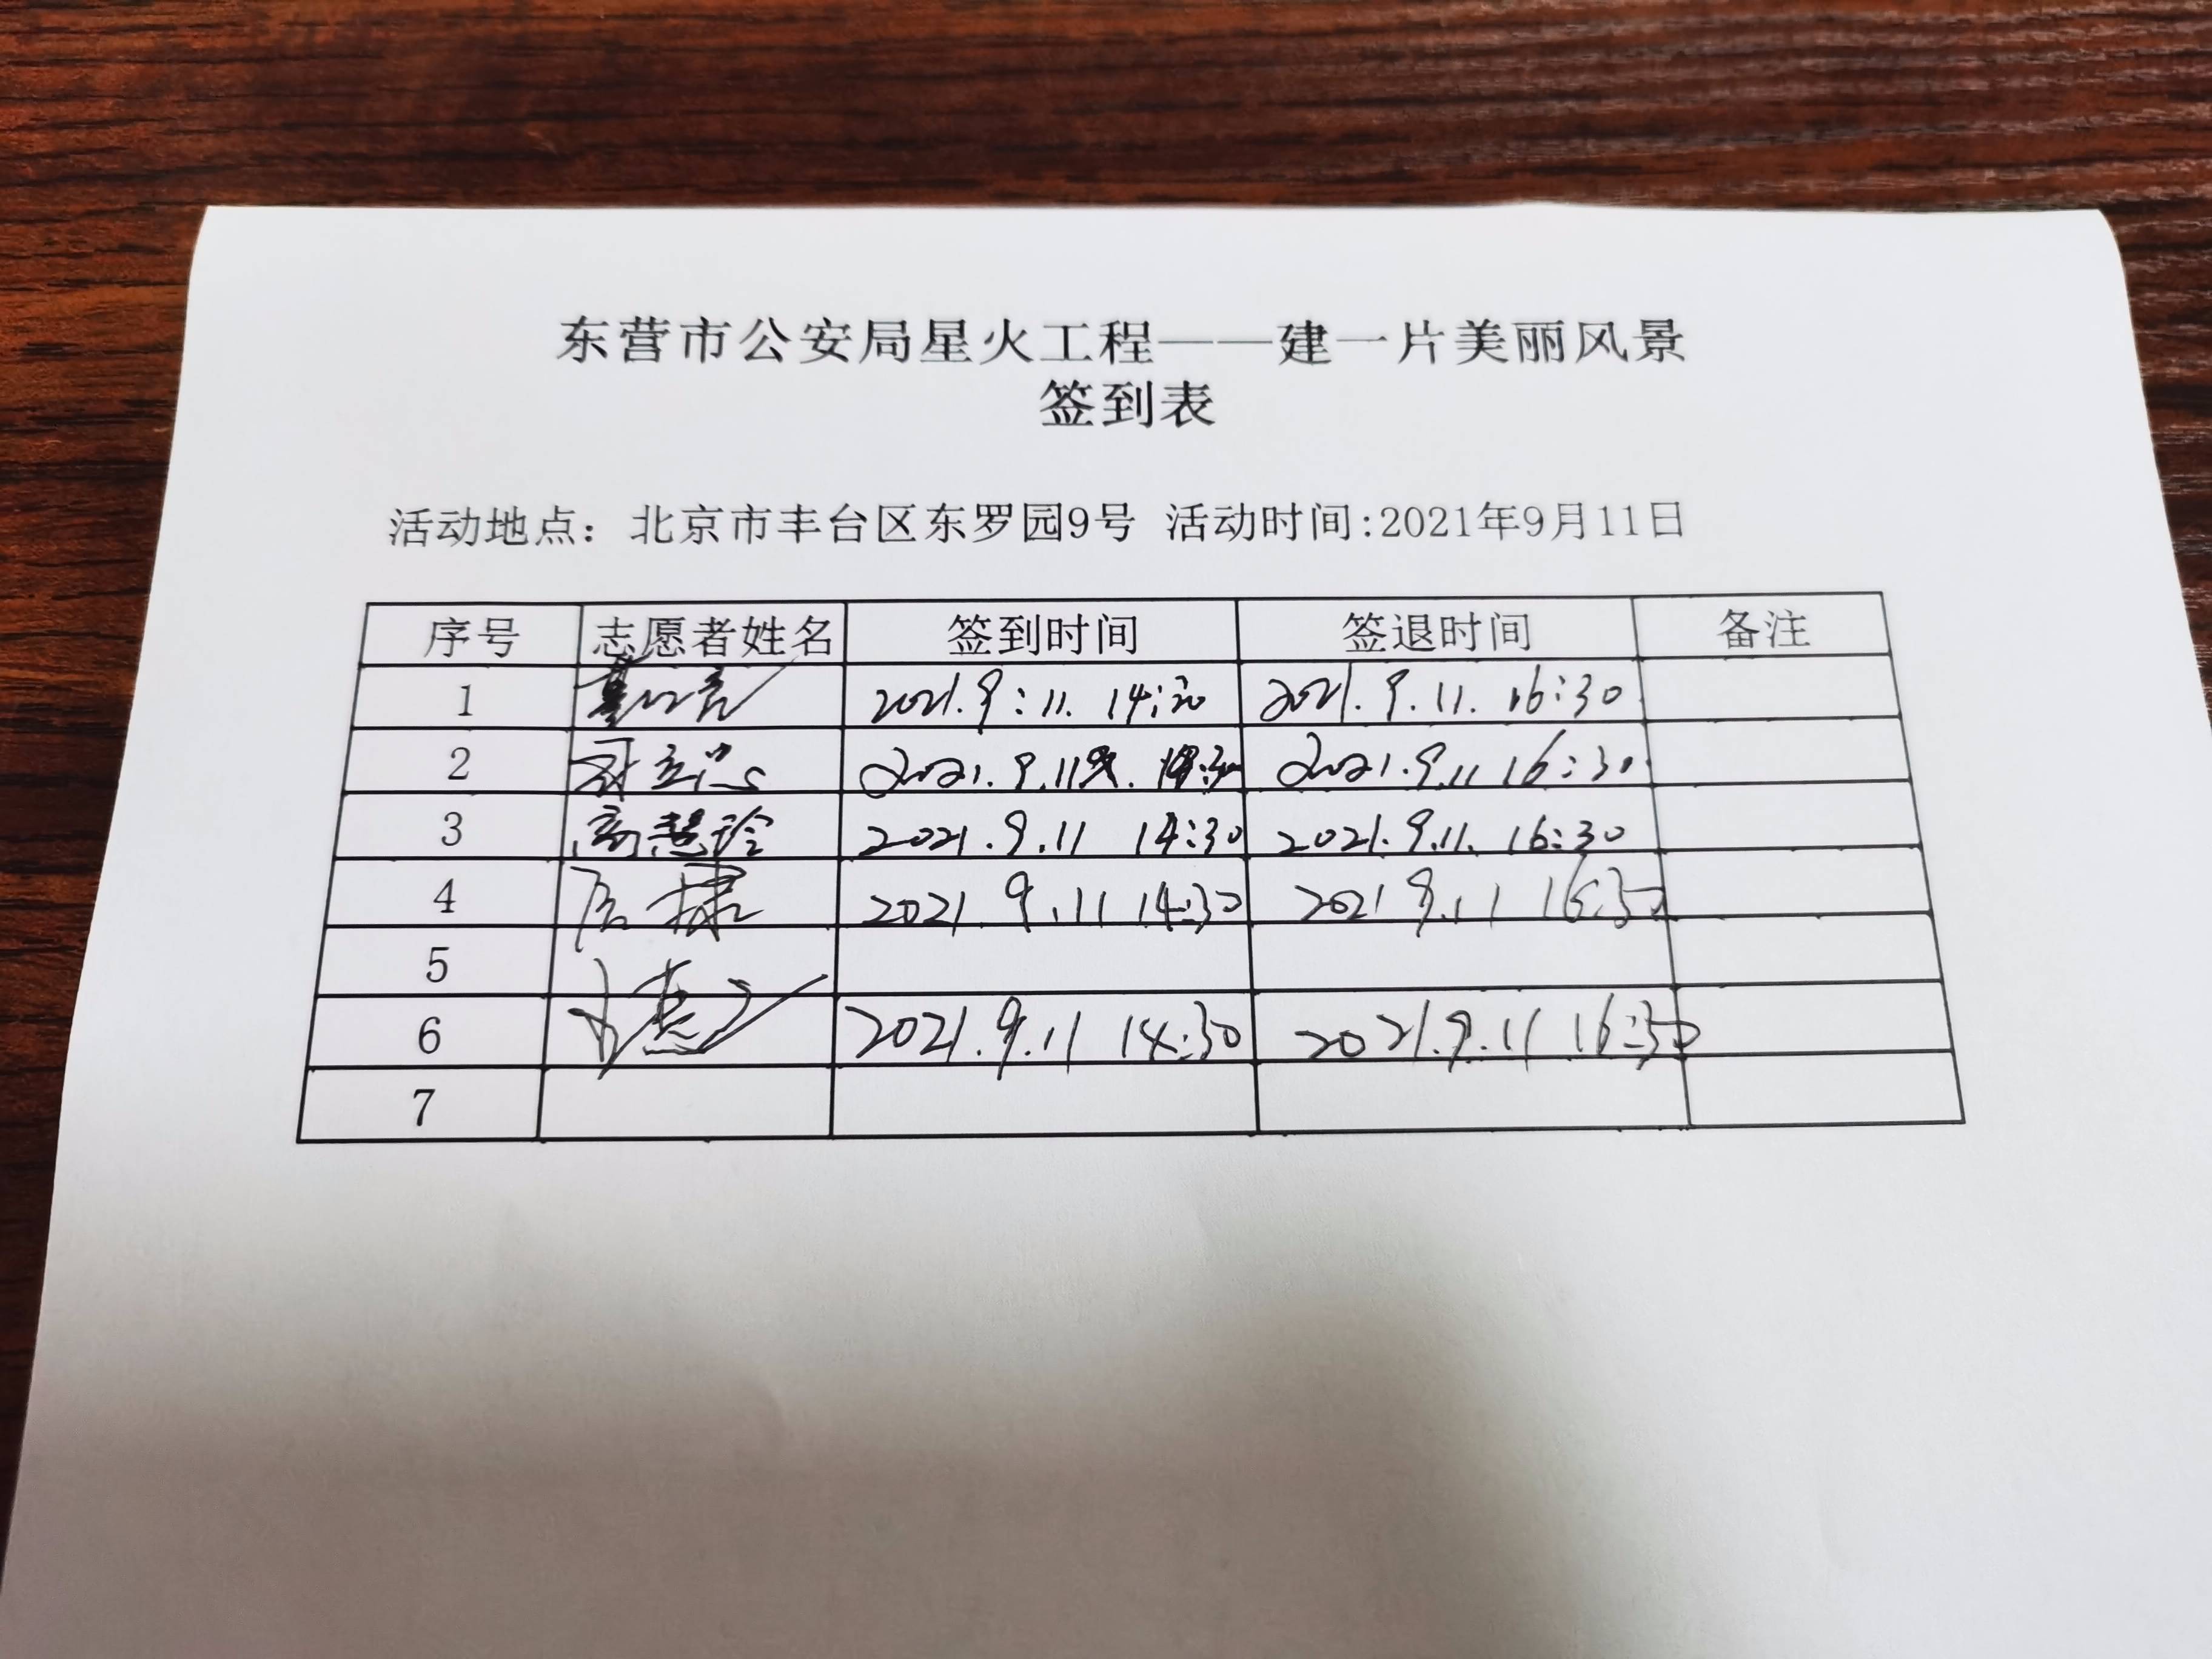 东营市公安局星火工程——建一片美丽风景
签到表
活动地点：北京市丰台区东罗园9号 活动时间:2021年9月11日
序号 志愿者姓名 签到时间 签退时间 备注
1 2021.9:11. 14:30 2021.9.11. 16:30
2 2021.9.11 14:30 2021.9.11 16:30
3 高慧玲 2021.9.11 14:30 2021.9.11. 16:30
4 2021 9.11 14:30 2021 9.11 16:30
5
6 2021.9.11 14:30 2021.9.11 16:30
7